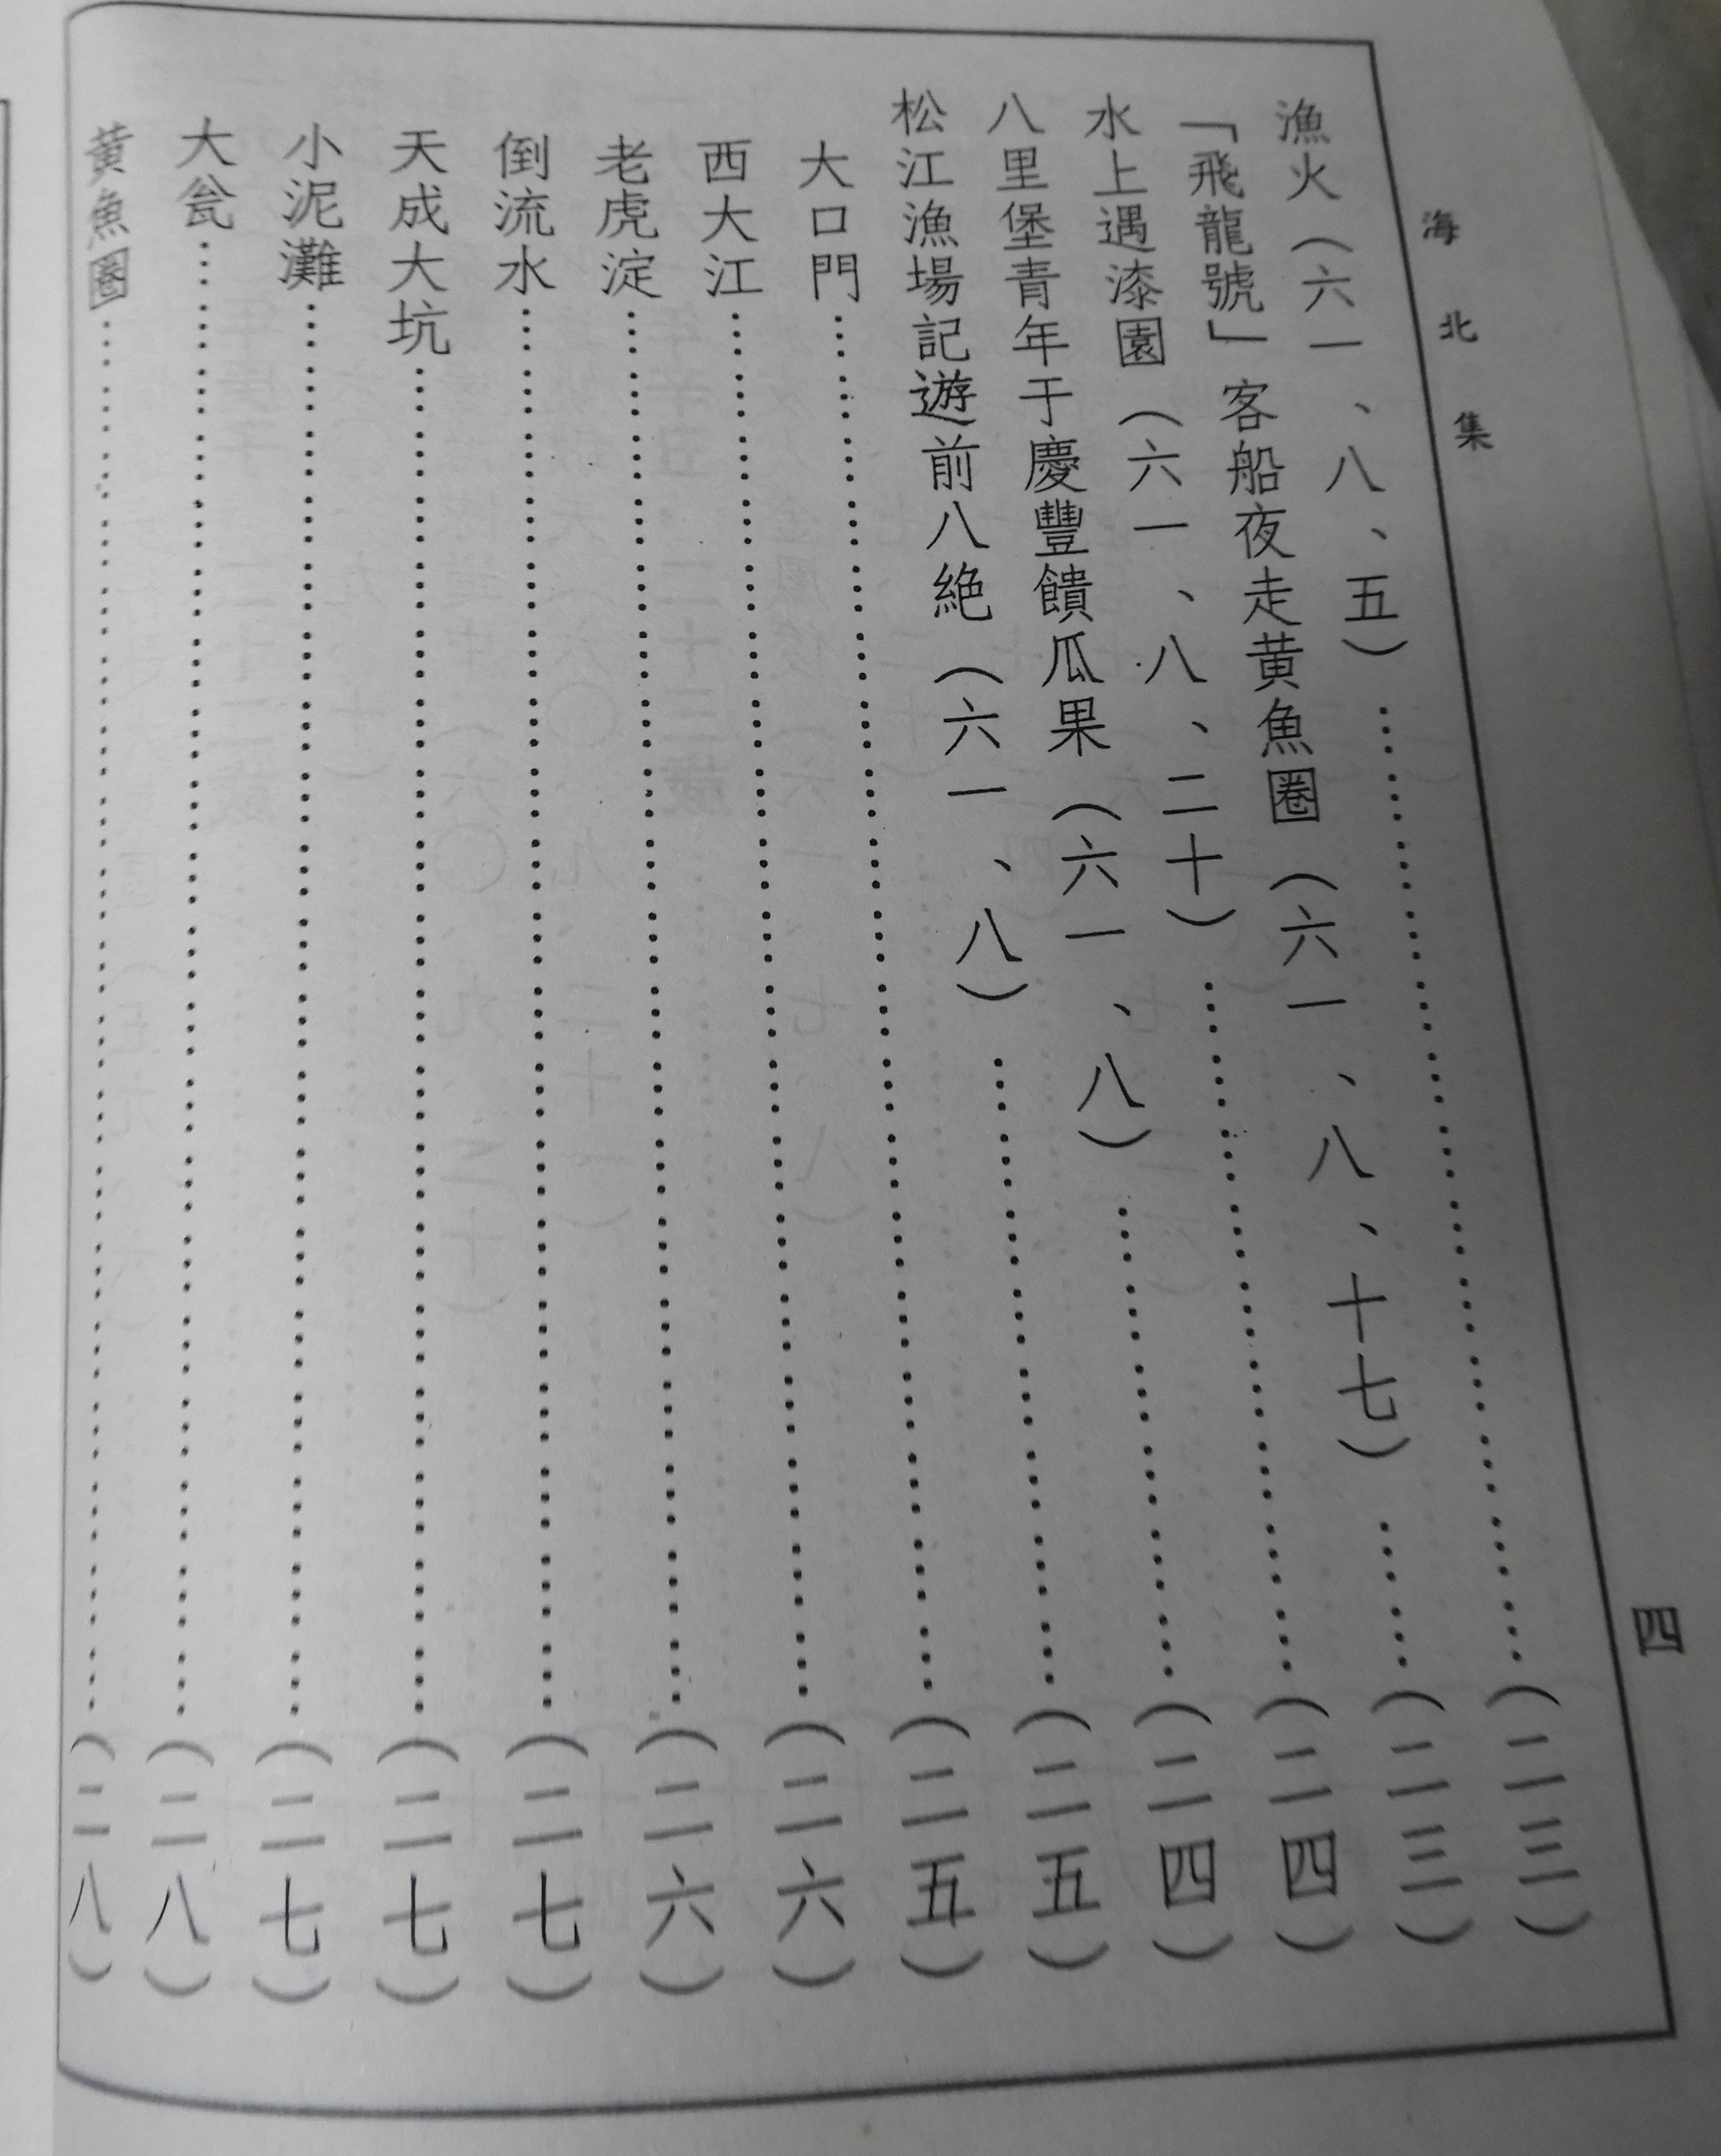 海北集
四
漁火（六一、八、五）……（二三）
「飛龍號」客船夜走黄魚圈（六一、八、十七）……（二三）
水上遇漆園（六一、八、二十）……（二四）
八里堡青年于慶豐饋瓜果（六一、八）……（二四）
松江漁場記遊前八絶（六一、八）……（二五）
大口門……（二五）
西大江……（二六）
老虎淀……（二六）
倒流水……（二七）
天成大坑……（二七）
小泥灘……（二七）
大瓮……（二八）
黄魚圈……（二八）